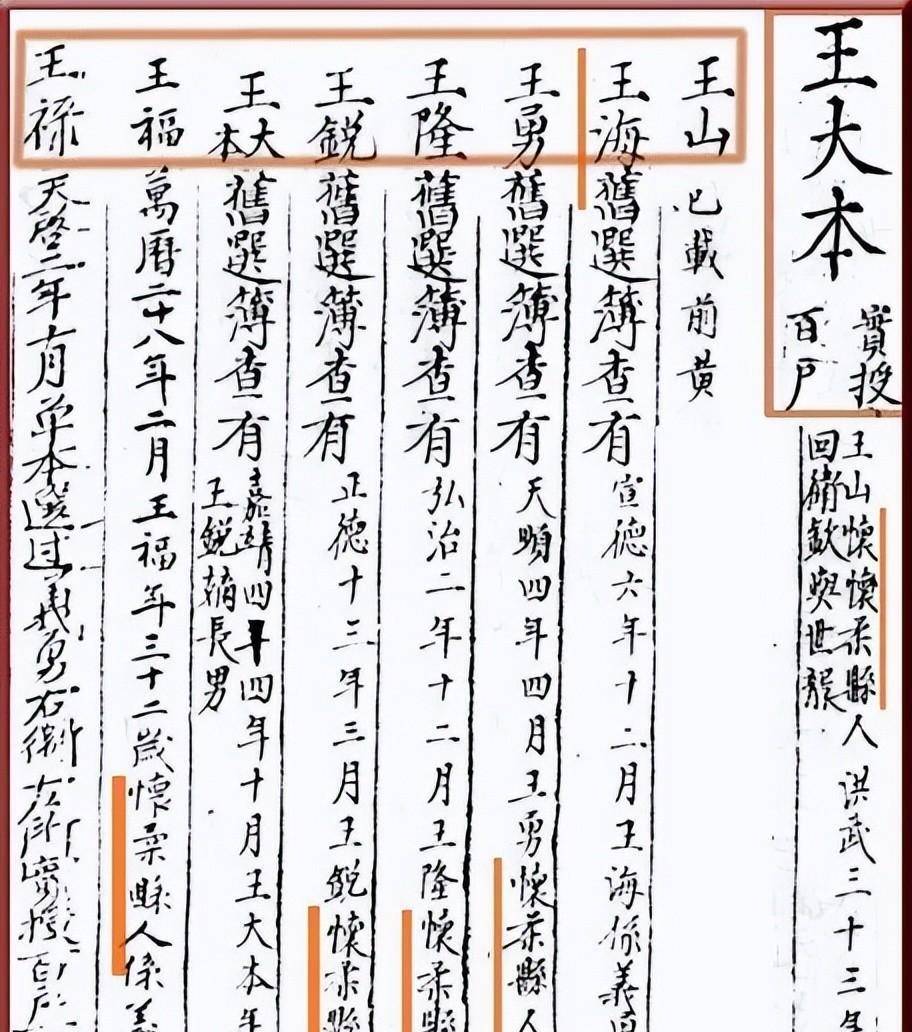 王大本
實授
百戶
王山懷懷柔縣人洪武三十三年
回衛歇與世襲
王山已載前黄
王海舊選簿查有宣德六年十二月王海係義勇
王勇舊選簿查有天順四年四月王勇懷柔縣人
王隆舊選簿查有弘治二年十二月王隆懷柔縣
王銳舊選簿查有正德十三年三月王銳懷柔縣
王大本舊選簿查有嘉靖四年四年十月王大本年
王銳嫡長男
王福萬曆二十八年二月王福年三十二歲懷柔縣人係義
王祿天啓二年十月單本選过義勇右衛左所實授百戶